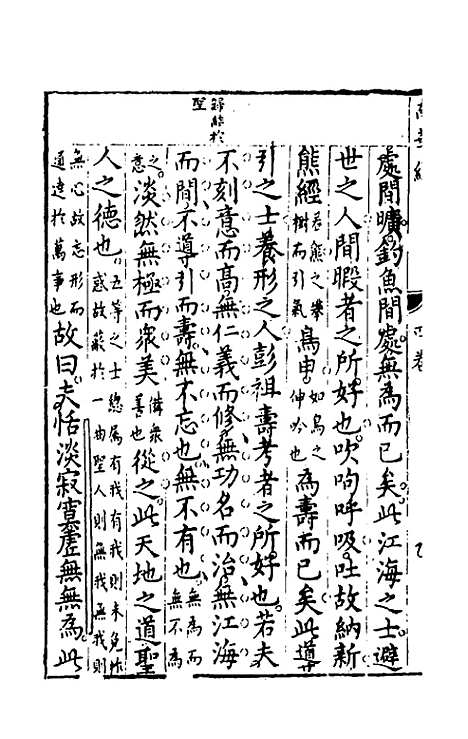 處閒曠釣魚閒處無為而已矣此江海之士避
世之人閒暇者之所好也吹呴呼吸吐故納新
熊經若熊之攀樹而引氣鳥申如鳥之伸吟也為壽而已矣此導
引之士養形之人彭祖壽考者之所好也若夫
不刻意而高無仁義而修無功名而治無江海
而閒不導引而壽無不忘也無不有也無為而無不為
之意淡然無極而衆美備衆善也從之此天地之道聖
人之德也五等之士總屬有我有我則未免惑故蔽於一曲聖人則無我無我則
無心故忘形而通達於萬事也故曰夫恬淡寂寞虛無無為此
歸結於聖
卷